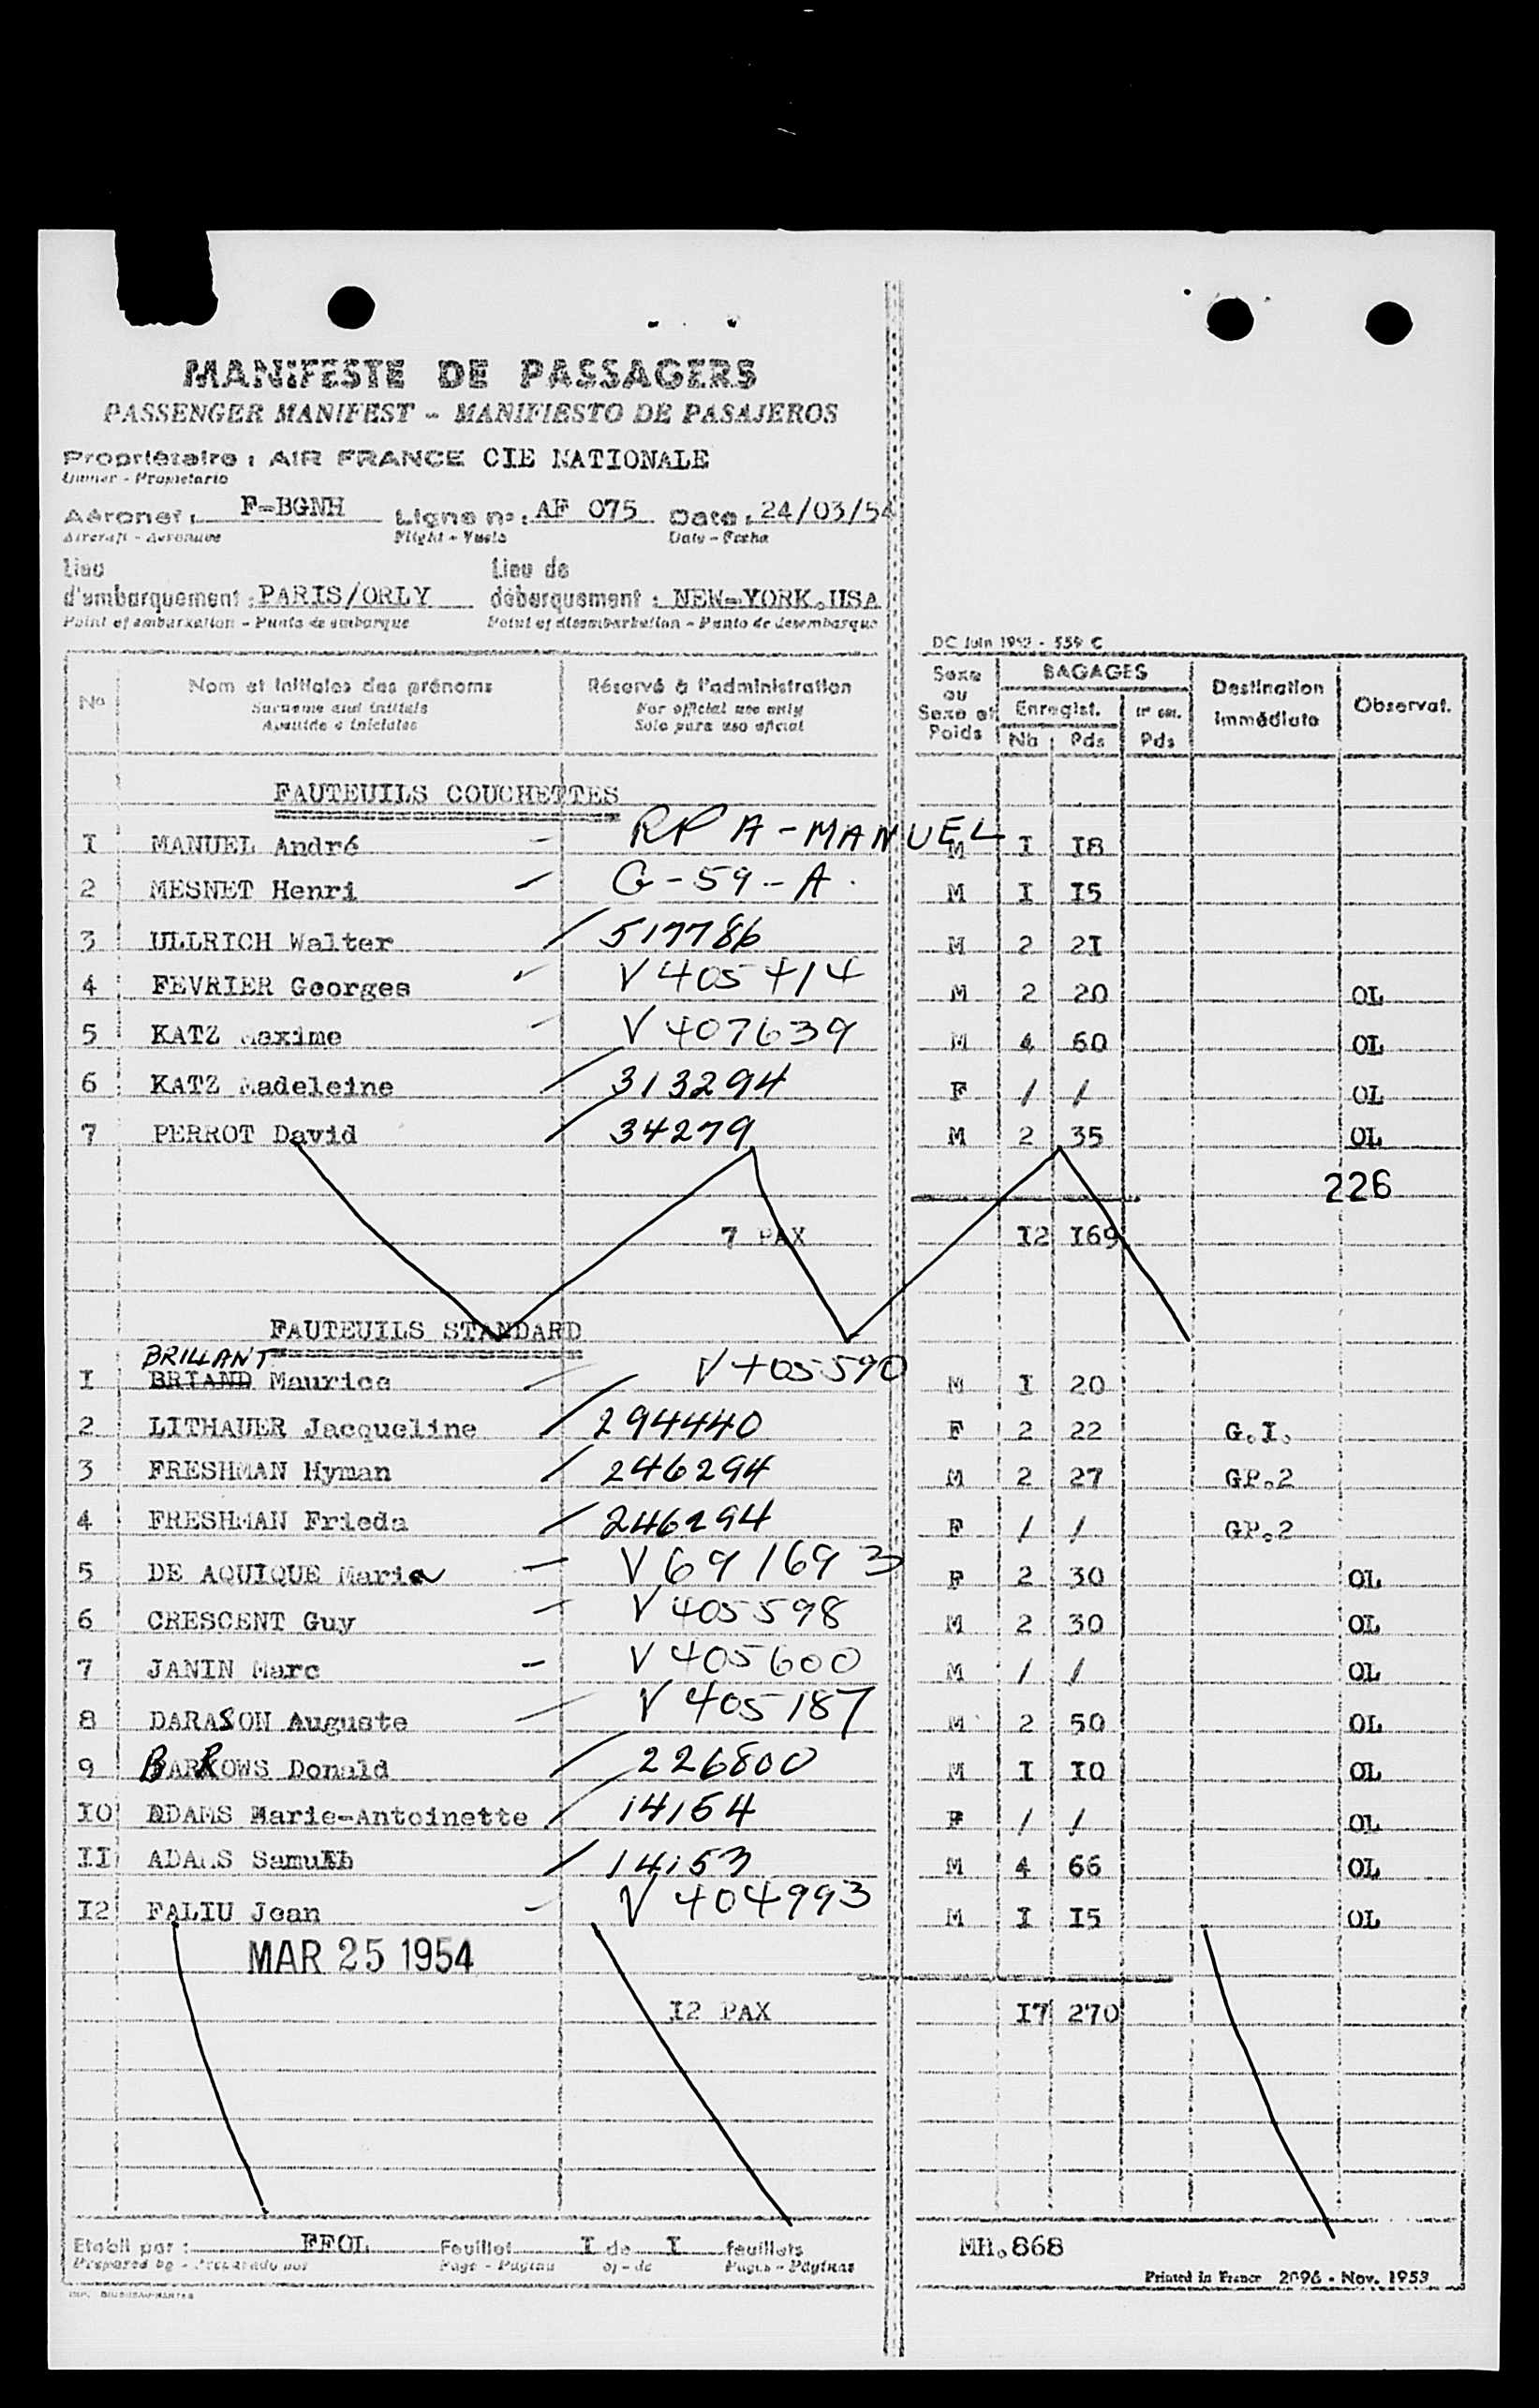 MANIFESTE DE PASSAGERS
PASSENGER MANIFEST - MANIFIESTO DE PASAJEROS
Propriétaire : AIR FRANCE CIE NATIONALE
Owner - Propietario
Aéronef : F-BGNH Ligne n° : AF 075 Date : 24/03/54
Aircraft - Aeronave Flight - Vuelo Date - Fecha
Lieu Lieu de
d'embarquement : PARIS/ORLY débarquement : NEW-YORK.USA
Point of embarkation - Punto de embarque Point of disembarkation - Punto de desembarque
DC Juin 1952 - 559 C
No Nom et initiales des prénoms Réservé à l'administration Sexe ou Sexe et Poids BAGAGES Destination immédiate Observat.
Surname and initials For official use only Enregist.
Apellido e iniciales Solo para uso oficial Nb Pds Pds
FAUTEUILS COUCHETTES
I MANUEL André RP A-MANUEL M I I8
2 MESNET Henri G-59-A. M I I5
3 ULLRICH Walter 517786 M 2 2I
4 FEVRIER Georges V 405414 M 2 20 OL
5 KATZ Maxime V 407639 M 4 60 OL
6 KATZ Madeleine 313294 F / / OL
7 PERROT David 34279 M 2 35 OL
226
7 PAX I2 I69
FAUTEUILS STANDARD
BRILLANT
I BRIAND Maurice V 405590 M I 20
2 LITHAUER Jacqueline 294440 F 2 22 G.I.
3 FRESHMAN Hyman 246294 M 2 27 GP.2
4 FRESHMAN Frieda 246294 F / / GP.2
5 DE AQUIQUE Maria V 691693 F 2 30 OL
6 CRESCENT Guy V 405598 M 2 30 OL
7 JANIN Marc V 405600 M / / OL
8 DARASON Auguste V 405187 M 2 50 OL
9 BARROWS Donald 226800 M I I0 OL
I0 ADAMS Marie-Antoinette 14154 F / / OL
II ADAMS Samuel 14153 M 4 66 OL
I2 FALIU Jean V 404993 M I I5 OL
MAR 25 1954
I2 PAX I7 270
Etabli par : FFOL Feuillet I de I feuillets MH.868
Prepared by - Preparado por Page - Página of - de Pages - Páginas
Printed in France 2096 - Nov. 1953